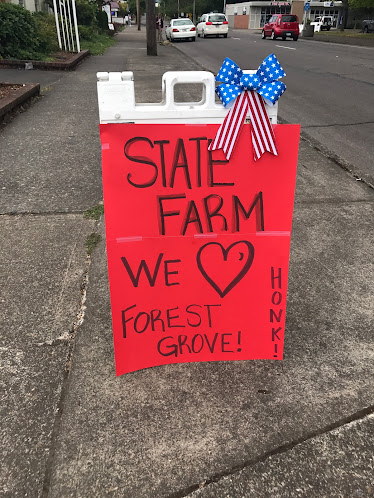 STATE
FARM
WE
FOREST
GROVE!
HONK!